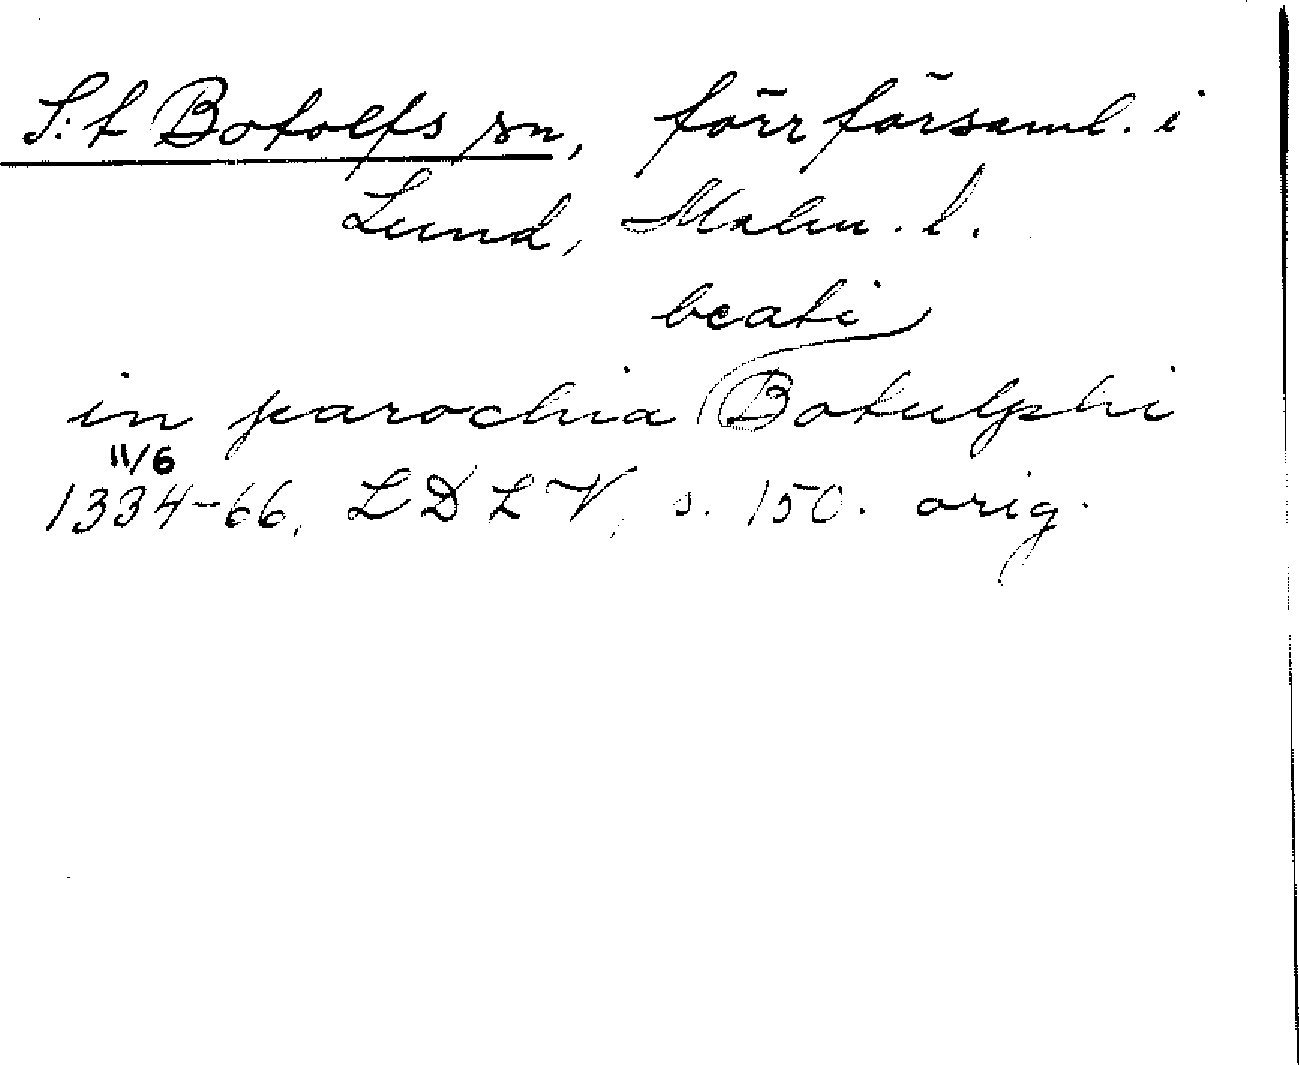 S:t Botolfs sn, förr församl. i
Lund, Malm. l.
beati
in parochia Botulphi
11/6
1334-66, LDLV, s. 150. orig.